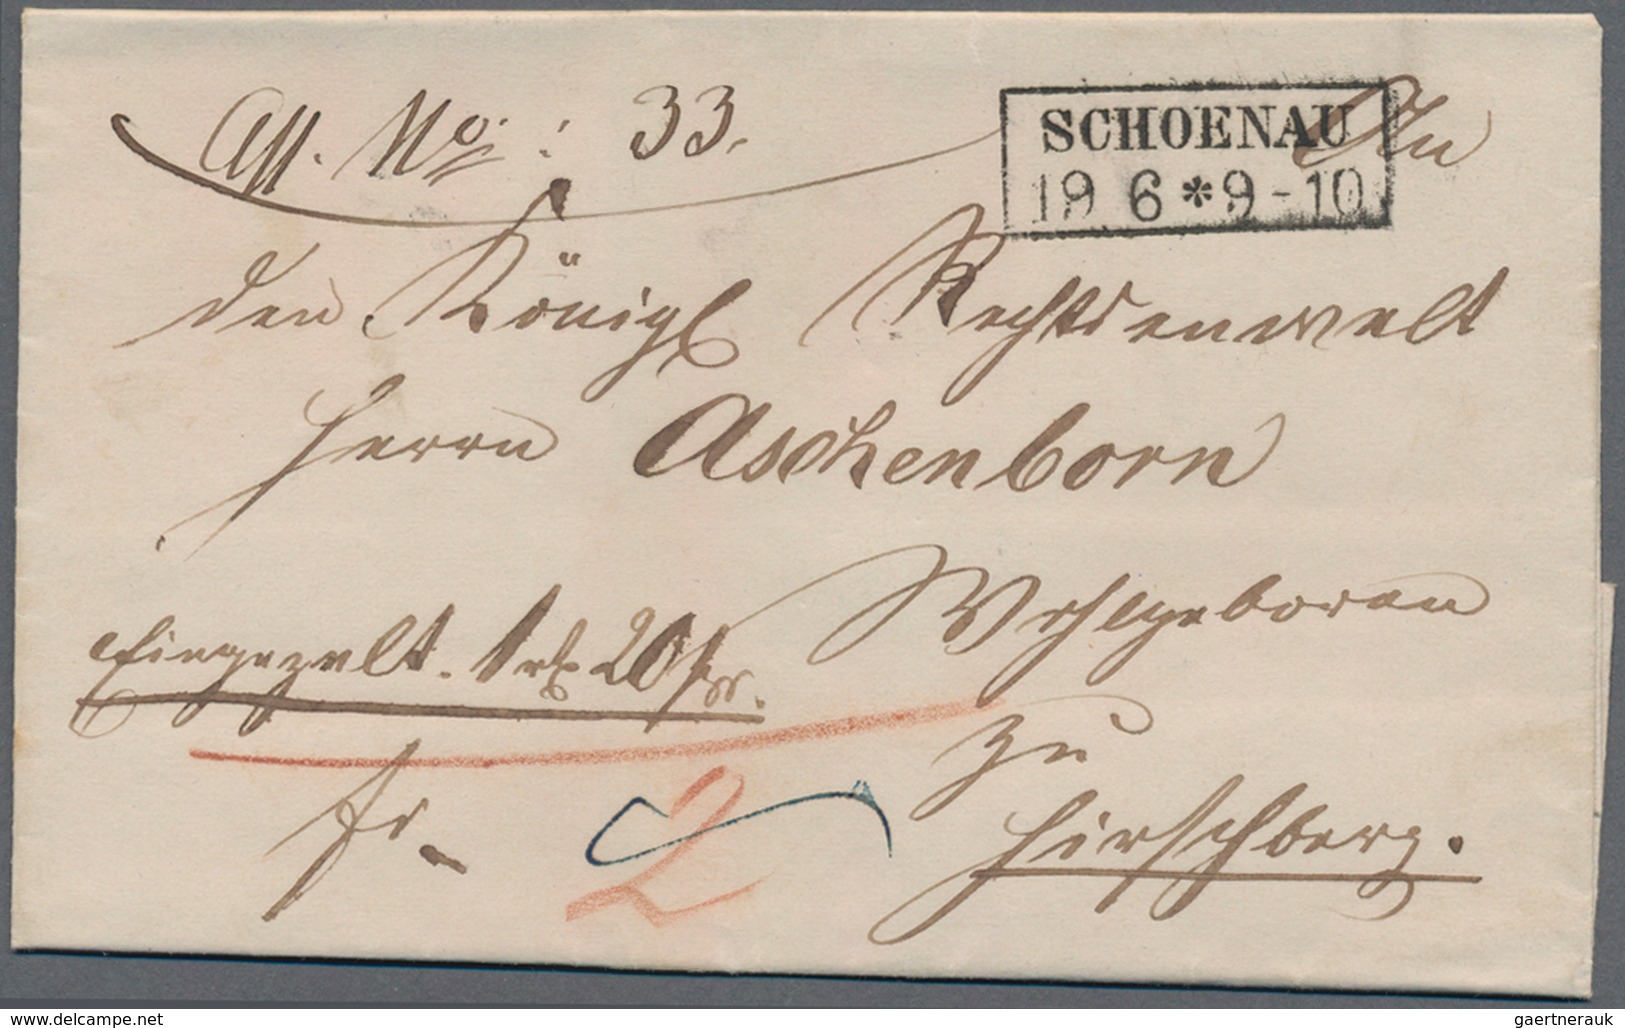 Aff. No: 33.
SCHOENAU
19 6 * 9-10
An
den Königl Rechtsanwalt
Herrn Aschenborn
Wohlgeboren
Eingezalt. 1 rt 20 sgr.
zu
fr
2
Hirschberg.
delcampe.net
gaertnerauk